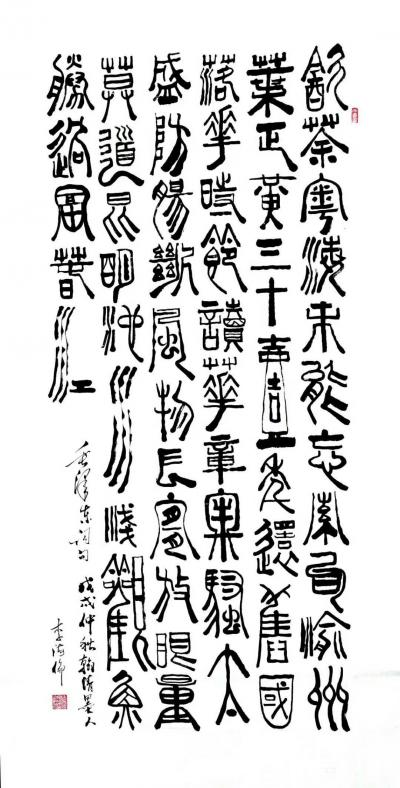 飲茶粵海未能忘索句渝州
葉正黃三十壹年還舊國
落花時節讀華章牢騷太
盛防腸斷風物長宜放眼量
莫道昆明池水淺觀魚
勝過富春江
毛澤東詞句
戊戌仲秋翰墨人
李海